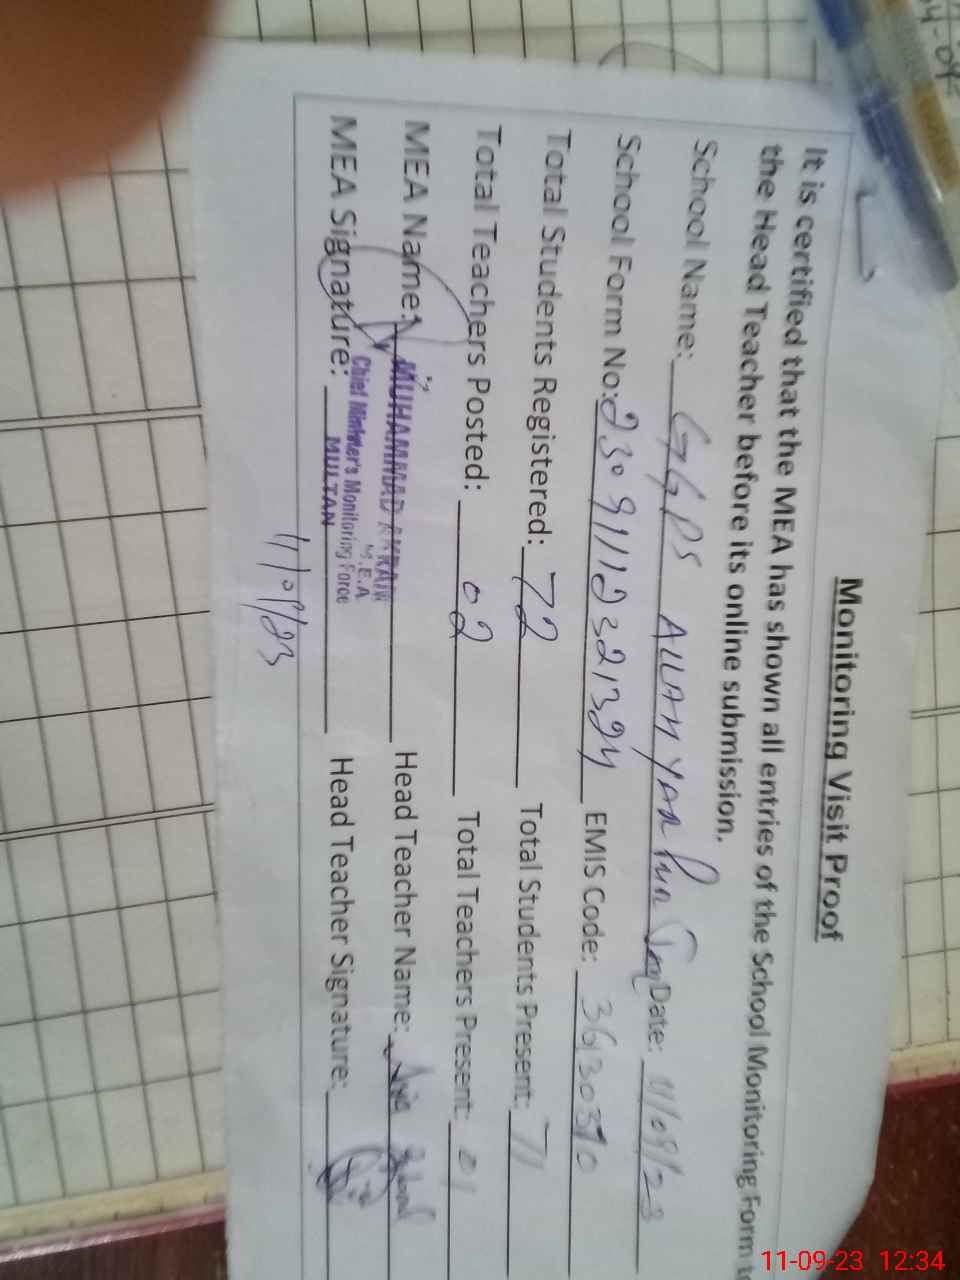 Monitoring Visit Proof
It is certified that the MEA has shown all entries of the School Monitoring Form to
the Head Teacher before its online submission.
School Name: GGPS ALLAH YAR Date: 11/09/23
School Form No: 23091112321324 EMIS Code:
Total Students Registered: 72 Total Students Present: 71
Total Teachers Posted: 02 Total Teachers Present: 01
MEA Name: MUHAMMAD AKRAM Head Teacher Name:
M.E.A
Chief Minister's Monitoring Force
MEA Signature: MULTAN Head Teacher Signature:
11/09/23
11-09-23 12:34